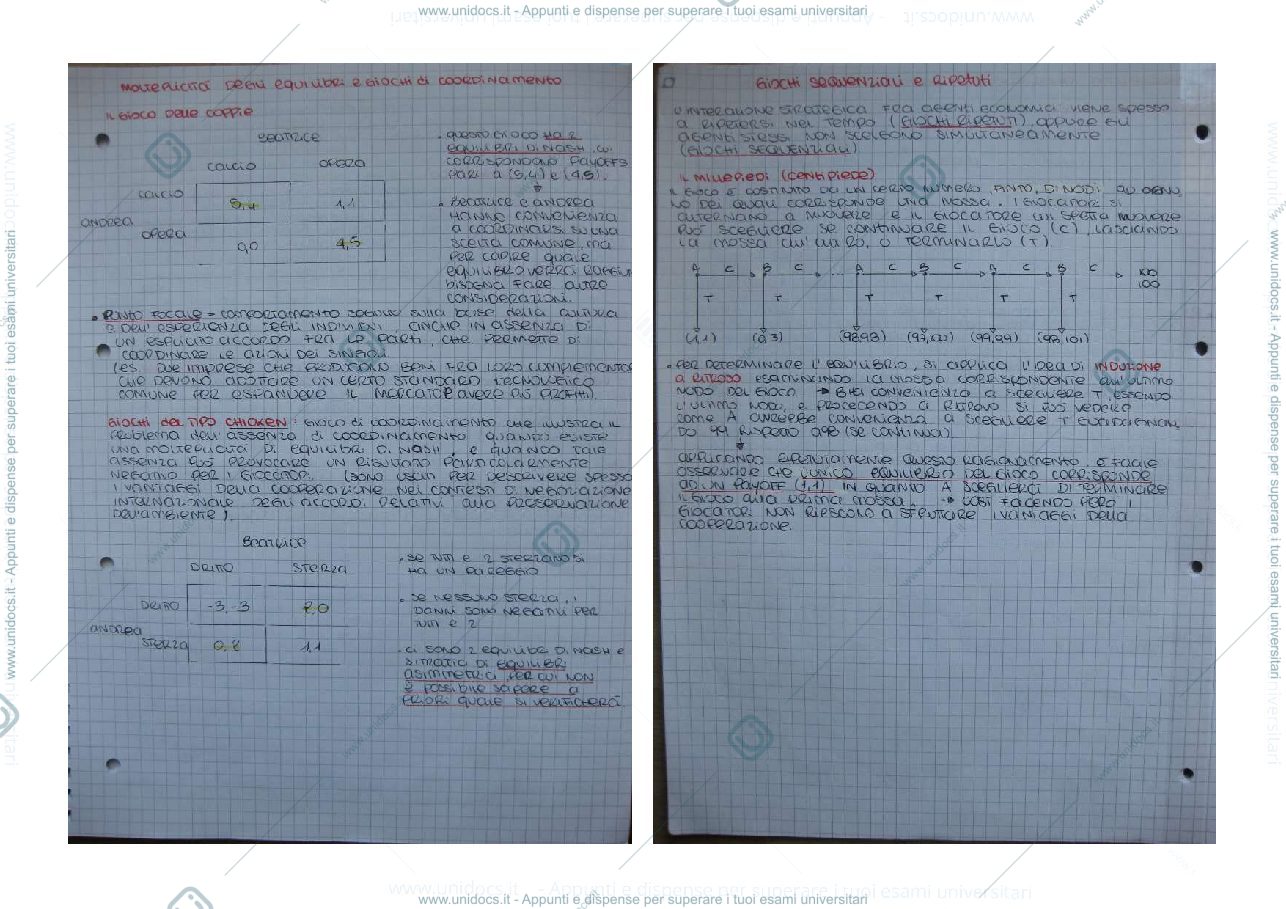 www.unidocs.it - Appunti e dispense per superare i tuoi esami universitari
MOLTEPLICITÀ DEGLI EQUILIBRI E GIOCHI DI COORDINAMENTO
IL GIOCO DELLE COPPIE
BEATRICE
CALCIO OPERA
CALCIO 5,4 1,1
ANDREA
OPERA 0,0 4,5
• QUESTO GIOCO HA 2
EQUILIBRI DI NASH, CUI
CORRISPONDONO PAYOFFS
PARI A (5,4) E (4,5).
• BEATRICE E ANDREA
HANNO CONVENIENZA
A COORDINARSI SU UNA
SCELTA COMUNE, MA
PER CAPIRE QUALE
EQUILIBRIO VERRÀ RAGGIUN
BISOGNA FARE ALTRE
CONSIDERAZIONI.
• PUNTO FOCALE = COMPORTAMENTO SCELTO SULLA BASE DELLA CULTURA
E DELL'ESPERIENZA DEGLI INDIVIDUI, ANCHE IN ASSENZA DI
UN ESPLICITO ACCORDO TRA LE PARTI, CHE PERMETTE DI
COORDINARE LE AZIONI DEI SINGOLI
(ES. DUE IMPRESE CHE PRODUCONO BENI TRA LORO COMPLEMENTARI
CHE DEVONO ADOTTARE UN CERTO STANDARD TECNOLOGICO
COMUNE PER ESPANDERE IL MERCATO E AVERE PIÙ PROFITTI).
GIOCHI DEL TIPO CHICKEN: GIOCO DI COORDINAMENTO CHE ILLUSTRA IL
PROBLEMA DELL'ASSENZA DI COORDINAMENTO QUANDO ESISTE
UNA MOLTEPLICITÀ DI EQUILIBRI DI NASH, E QUANDO TALE
ASSENZA PUÒ PROVOCARE UN RISULTATO PARTICOLARMENTE
NEGATIVO PER I GIOCATORI. (SONO USATI PER DESCRIVERE SPESSO
I VANTAGGI DELLA COOPERAZIONE NEL CONTESTO DI NEGOZIAZIONE
INTERNAZIONALE DEGLI ACCORDI RELATIVI ALLA PRESERVAZIONE
DELL'AMBIENTE).
BEATRICE
DRITTO STERZA
DRITTO -3,-3 2,0
ANDREA
STERZA 0,2 1,1
• SE TUTTI E 2 STERZANO SI
HA UN PAREGGIO
• SE NESSUNO STERZA, I
DANNI SONO NEGATIVI PER
TUTTI E 2
• CI SONO 2 EQUILIBRI DI NASH E
SI TRATTA DI EQUILIBRI
ASIMMETRICI, PER CUI NON
È POSSIBILE SAPERE A
PRIORI QUALE SI VERIFICHERÀ
GIOCHI SEQUENZIALI E RIPETUTI
L'INTERAZIONE STRATEGICA TRA AGENTI ECONOMICI VIENE SPESSO
A RIPETERSI NEL TEMPO (GIOCHI RIPETUTI) OPPURE GLI
AGENTI STESSI NON SCELGONO SIMULTANEAMENTE
(GIOCHI SEQUENZIALI)
IL MILLEPIEDI (CENTIPIEDE)
IL GIOCO È COSTITUITO DA UN CERTO NUMERO, FINITO, DI NODI, AD OGNU
NO DEI QUALI CORRISPONDE UNA MOSSA. I GIOCATORI SI
ALTERNANO A MUOVERE E IL GIOCATORE CUI SPETTA MUOVERE
PUÒ SCEGLIERE SE CONTINUARE IL GIOCO (C), LASCIANDO
LA MOSSA ALL'ALTRO, O TERMINARLO (T).
A C B C ... A C B C A C B C 100
100
T T T T T T
(1,1) (0,3) (98,98) (97,100) (99,99) (98,101)
• PER DETERMINARE L'EQUILIBRIO, SI APPLICA L'IDEA DI INDUZIONE
A RITROSO ESAMINANDO LA MOSSA CORRISPONDENTE ALL'ULTIMO
NODO DEL GIOCO → B HA CONVENIENZA A SCEGLIERE T, ESSENDO
L'ULTIMO NODO, E PROCEDENDO A RITROSO SI PUÒ VEDERE
COME A AVREBBE CONVENIENZA A SCEGLIERE T GUADAGNAN
DO 99 RISPETTO A 98 (SE CONTINUA)
APPLICANDO RIPETUTAMENTE QUESTO RAGIONAMENTO, È FACILE
OSSERVARE CHE L'UNICO EQUILIBRIO DEL GIOCO CORRISPONDE
AD UN PAYOFF (1,1) IN QUANTO A SCEGLIERÀ DI TERMINARE
IL GIOCO ALLA PRIMA MOSSA. → COSÌ FACENDO PERÒ I
GIOCATORI NON RIESCONO A SFRUTTARE I VANTAGGI DELLA
COOPERAZIONE.
www.unidocs.it - Appunti e dispense per superare i tuoi esami universitari